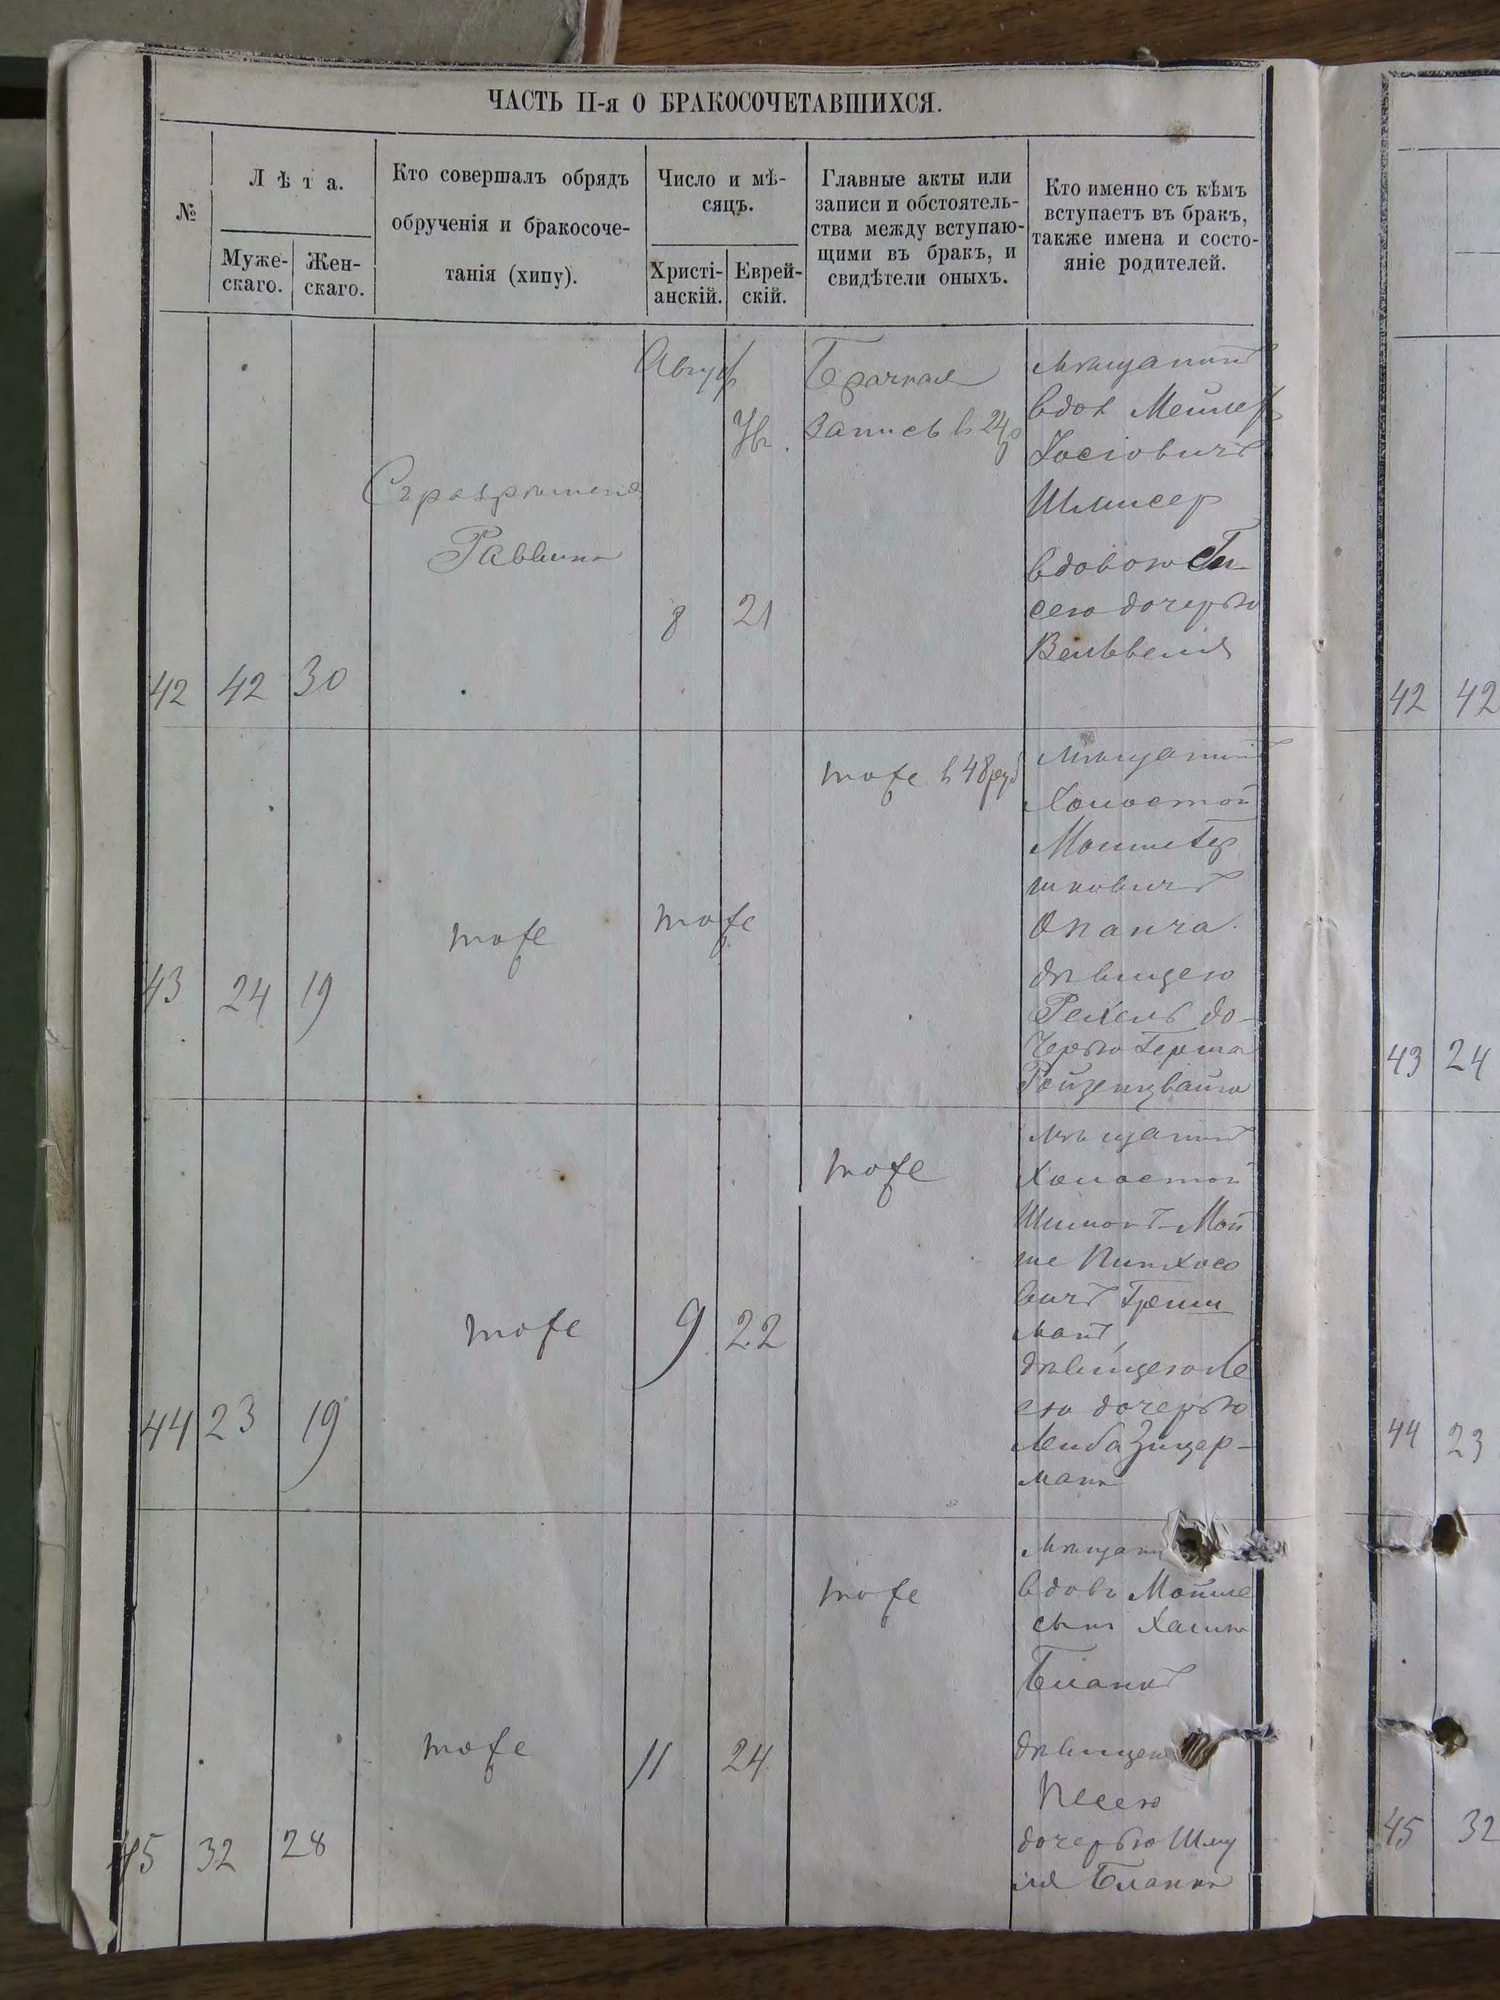 ЧАСТЬ II-я О БРАКОСОЧЕТАВШИХСЯ.
№
Лѣта.
Муже-
скаго.
Жен-
скаго.
Кто совершалъ обрядъ
обрученія и бракосоче-
танія (хипу).
Число и мѣ-
сяцъ.
Христі-
анскій.
Еврей-
скій.
Главные акты или
записи и обстоятель-
ства между вступаю-
щими въ бракъ, и
свидѣтели оныхъ.
Кто именно съ кѣмъ
вступаетъ въ бракъ,
также имена и состо-
яніе родителей.
42
42
30
Съ разрѣшенія
Раввина
8
21
Брачная
запись в 24 р
мѣщанинъ
вдов Мейлер
Іосіовичъ
Шлисер
вдовою Ги-
сею дочерью
Вельвеля
43
24
19
тоже
тоже
тоже в 48 руб
мѣщанинъ
Холостой
Мошке Гер
шковичъ
Опанча.
дѣвицею
Рейхель до-
черью Герша
Ройзенцвайга
44
23
19
тоже
9
22
тоже
мѣщанинъ
Холостой
Шимонъ-Мой
ше Пинхосо
вичъ
манъ,
дѣвицею Ле
ею дочерью
Лейба Зицер-
мана
45
32
28
тоже
11
24
тоже
вдовъ Мойше
сынъ Хаима
Бланкъ
дѣвицею
Песею
дочерью Шму
ля Бланка
42
42
43
24
44
23
45
32